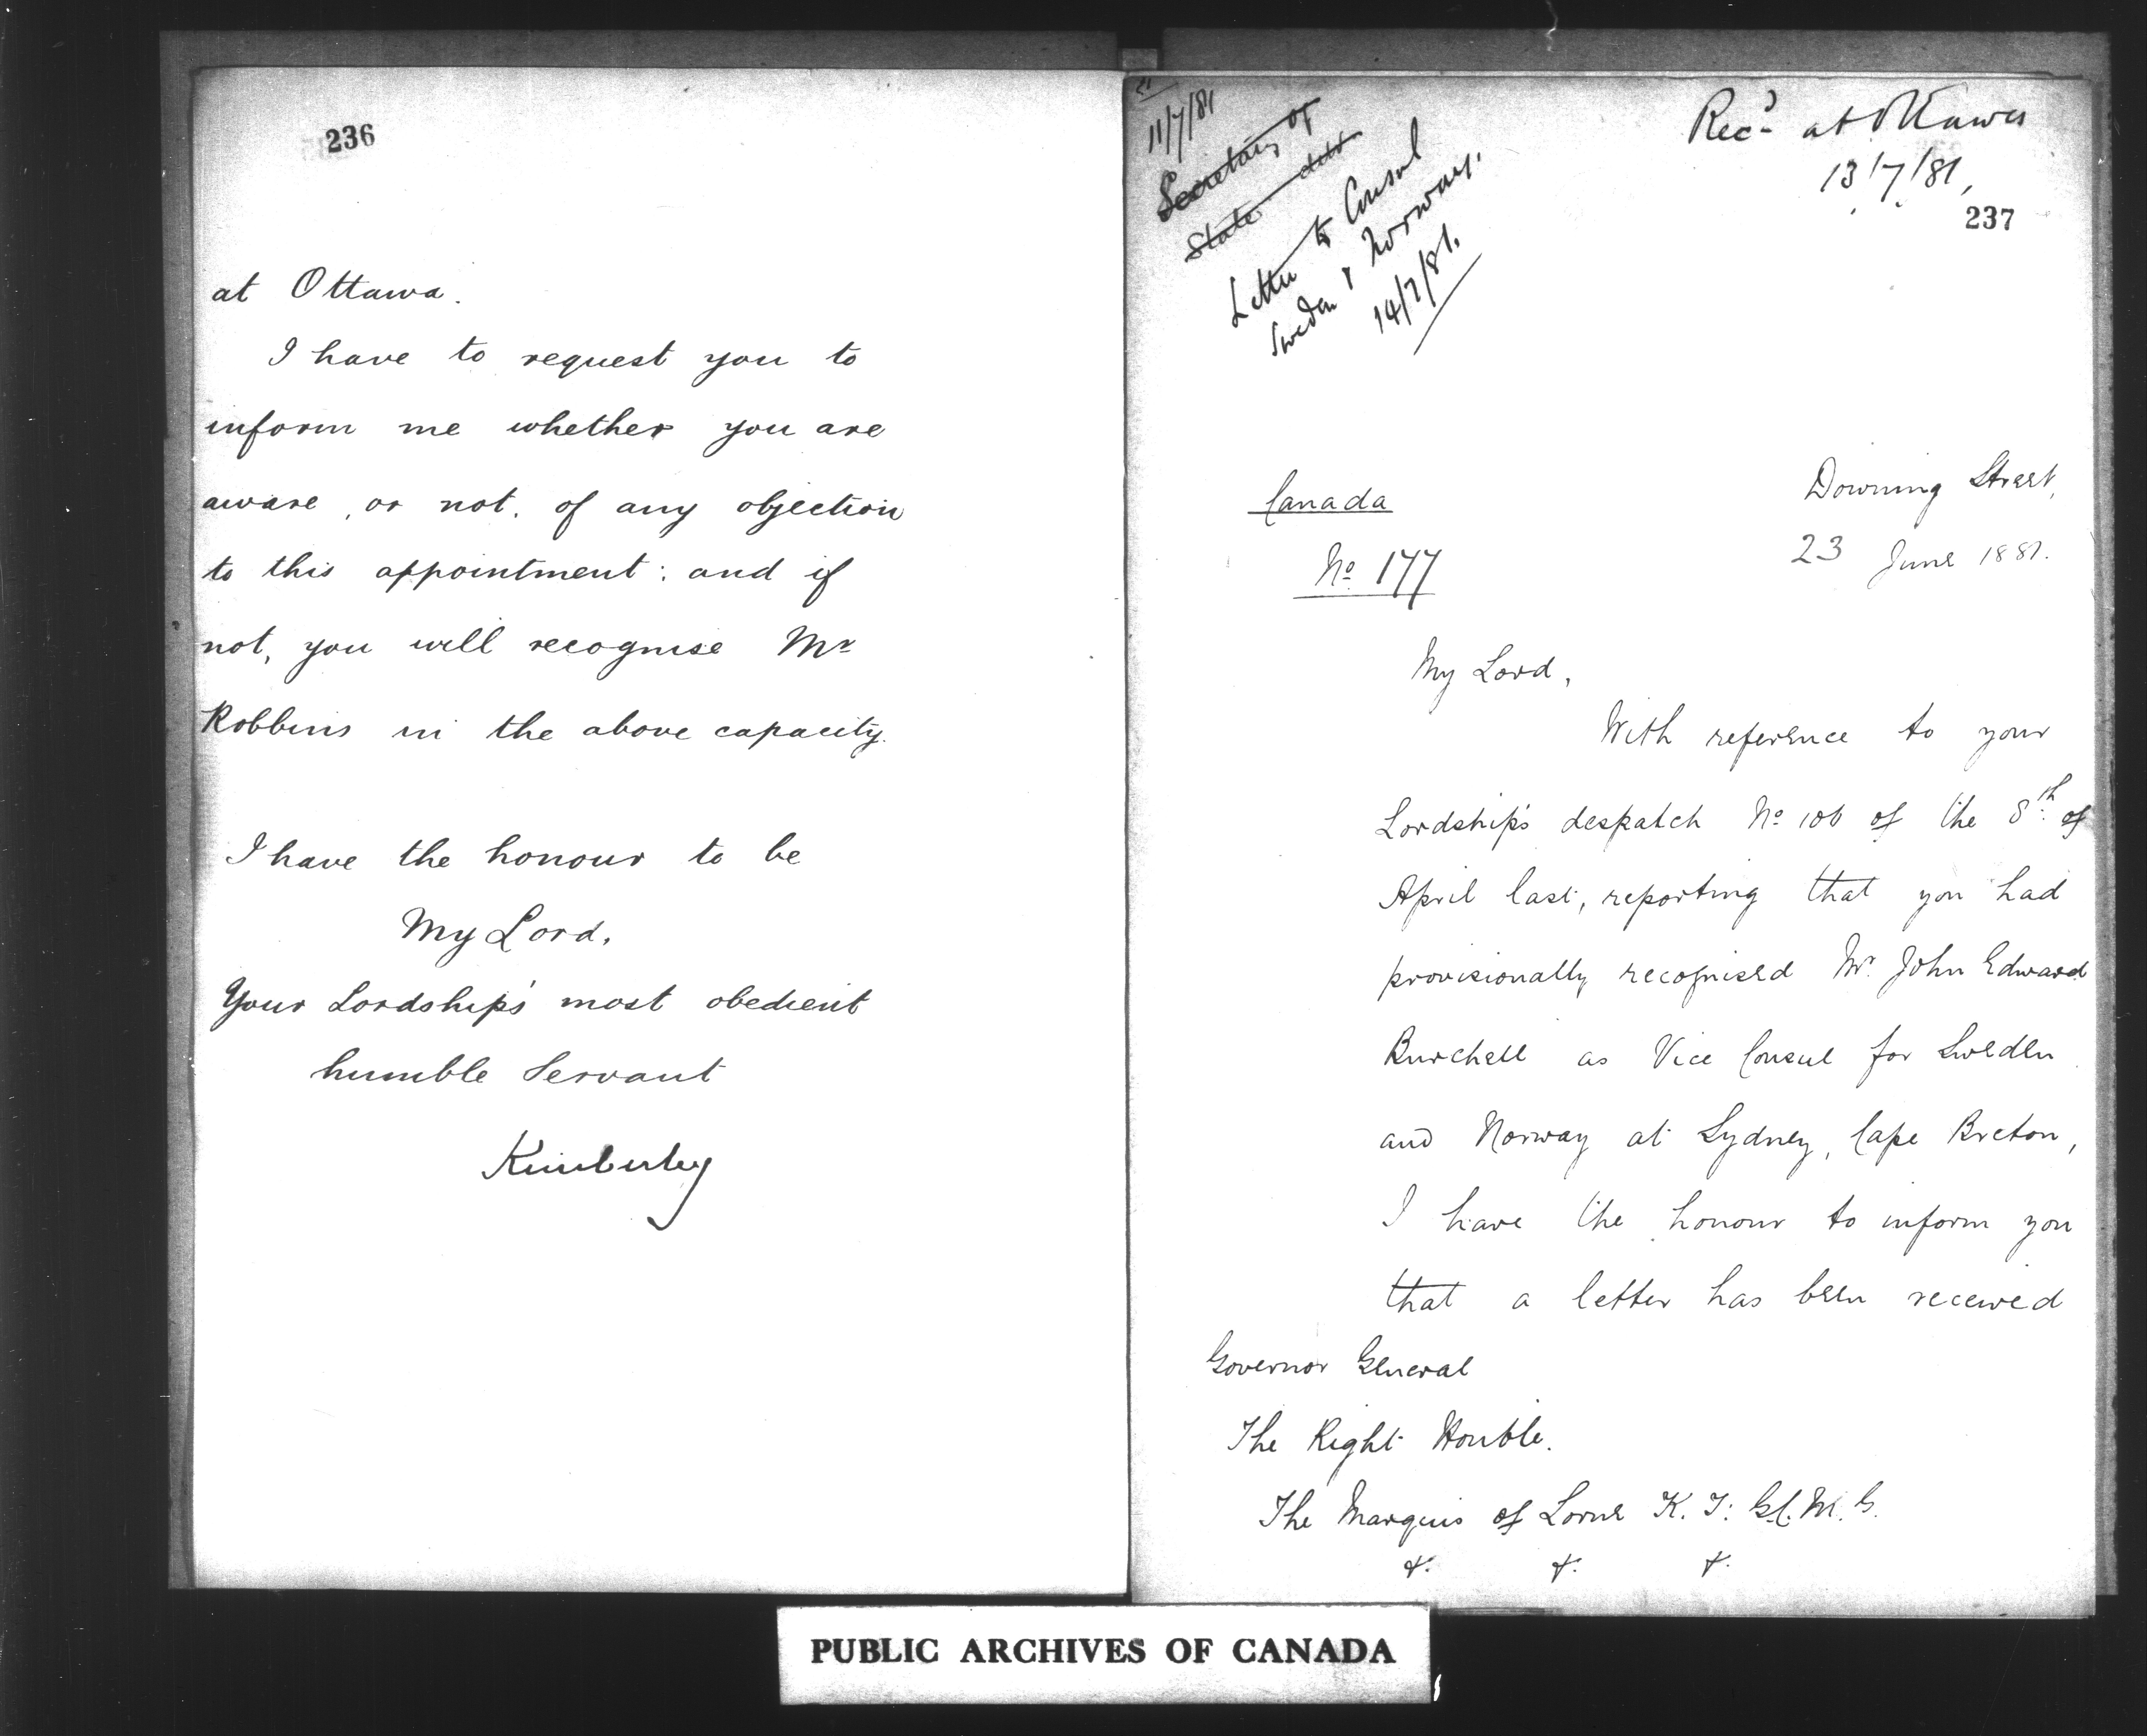 236
at Ottawa.
I have to request you to
inform me whether you are
aware, or not, of any objection
to this appointment: and if
not, you will recognise Mr
Robbins in the above capacity.
I have the honour to be
My Lord,
Your Lordship's most obedient
humble Servant
Kimberley
11/7/81
Secretary of
State
Letter to Consul
Sweden & Norway.
14/7/81.
Recd at Ottawa
13/7/81,
237
Canada
No 177
Downing Street,
23 June 1881.
My Lord,
With reference to your
Lordship's despatch No 106 of the 8th of
April last, reporting that you had
provisionally recognised Mr. John Edward
Burchell as Vice Consul for Sweden
and Norway at Sydney, Cape Breton,
I have the honour to inform you
that a letter has been received
Governor General
The Right Honble.
The Marquis of Lorne K. T: G.C.M.G.
&. &. &.
PUBLIC ARCHIVES OF CANADA